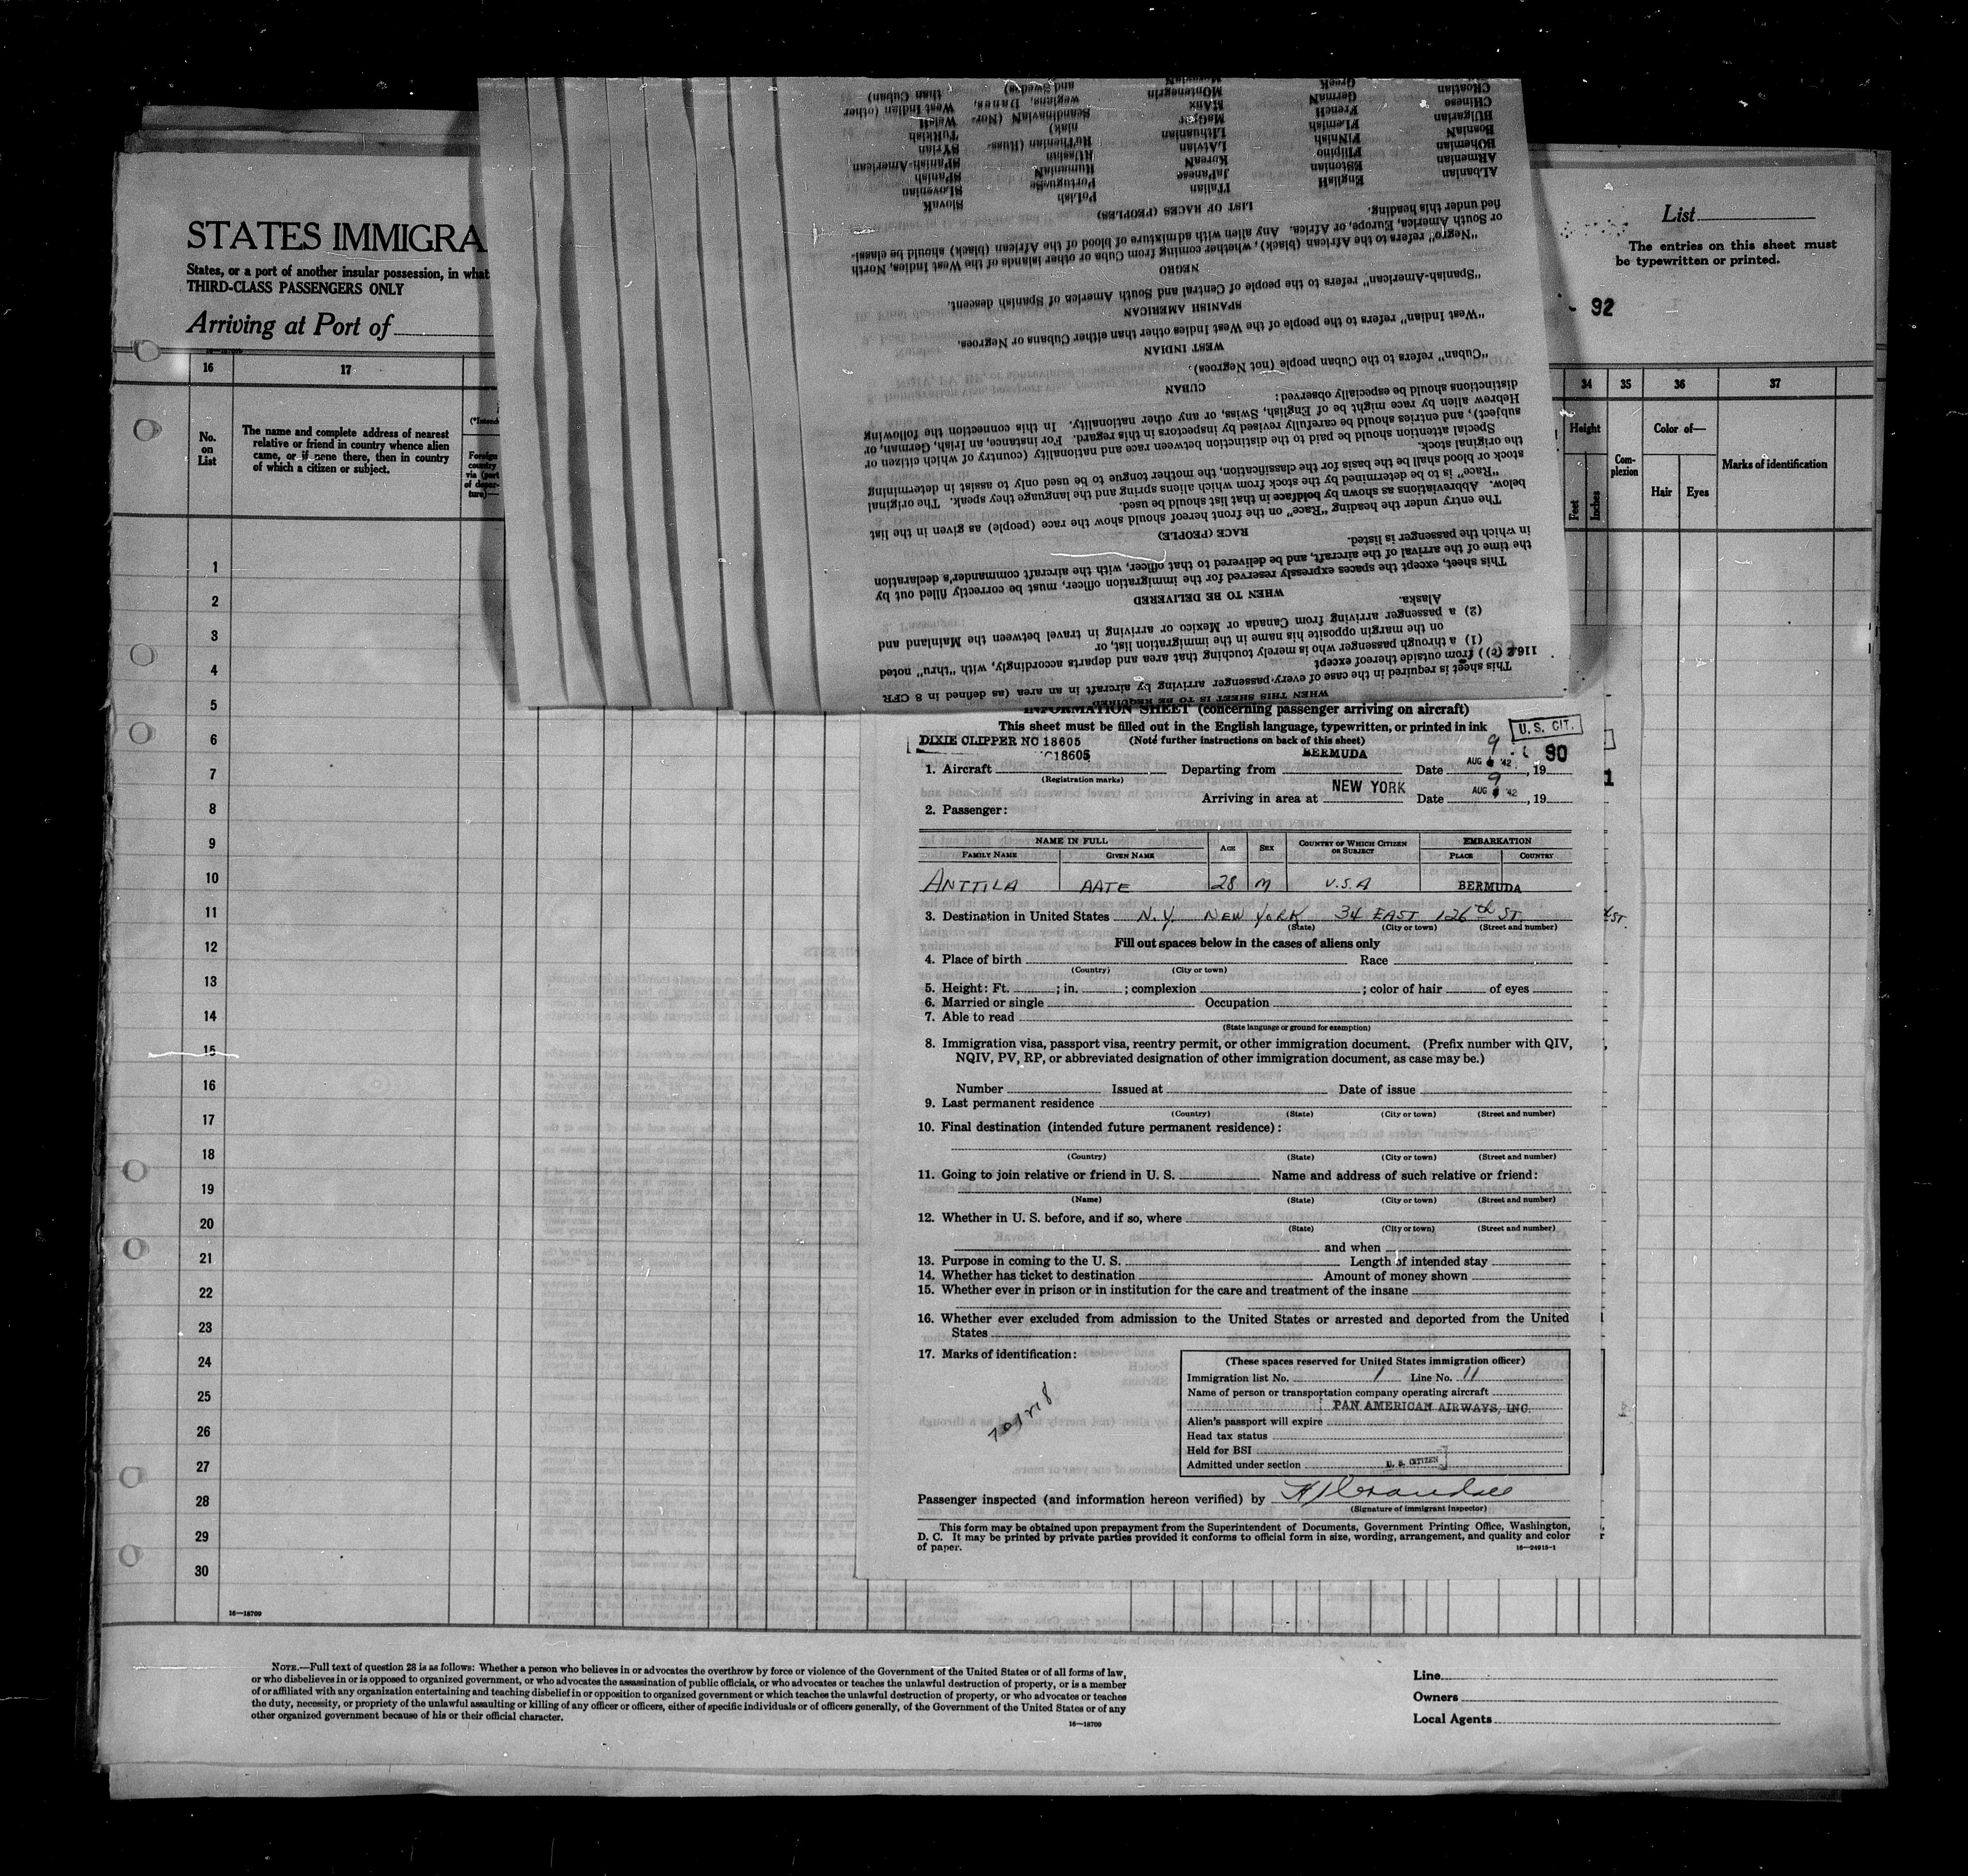 STATES IMMIGRA
States, or a port of another insular possession, in what
THIRD-CLASS PASSENGERS ONLY
Arriving at Port of
List
The entries on this sheet must
be typewritten or printed.
92
16 17 34 35 36 37
No. on List
The name and complete address of nearest
relative or friend in country whence alien
came, or if none there, then in country
of which a citizen or subject.
Foreign
country
via (port
of depar-
ture)—
Height
Feet Inches
Com-
plexion
Color of—
Hair Eyes
Marks of identification
1
2
3
4
5
6
7
8
9
10
11
12
13
14
15
16
17
18
19
20
21
22
23
24
25
26
27
28
29
30
16—18709
WHEN THIS SHEET IS TO BE REQUIRED
This sheet is required in the case of every passenger arriving by aircraft in an area (as defined in 8 CFR
116.2 (c)) from outside thereof except
(1) a through passenger who is merely touching that area and departs accordingly, with "thru" noted
on the margin opposite his name in the immigration list, or
(2) a passenger arriving from Canada or Mexico or arriving in travel between the Mainland and
Alaska.
WHEN TO BE DELIVERED
This sheet, except the spaces expressly reserved for the immigration officer, must be correctly filled out by
the time of the arrival of the aircraft, and be delivered to that officer, with the aircraft commander's declaration
in which the passenger is listed.
RACE (PEOPLE)
The entry under the heading "Race" on the front hereof should show the race (people) as given in the list
below. Abbreviations as shown by boldface in that list should be used.
"Race" is to be determined by the stock from which aliens spring and the language they speak. The original
stock or blood shall be the basis for the classification, the mother tongue to be used only to assist in determining
the original stock.
Special attention should be paid to the distinction between race and nationality (country of which citizen or
subject), and entries should be carefully revised by inspectors in this regard. For instance, an Irish, German, or
Hebrew alien by race might be of English, Swiss, or any other nationality. In this connection the following
distinctions should be especially observed:
CUBAN
"Cuban" refers to the Cuban people (not Negroes).
WEST INDIAN
"West Indian" refers to the people of the West Indies other than either Cubans or Negroes.
SPANISH AMERICAN
"Spanish-American" refers to the people of Central and South America of Spanish descent.
NEGRO
"Negro" refers to the African (black), whether coming from Cuba or other islands of the West Indies, North
or South America, Europe, or Africa. Any alien with admixture of blood of the African (black) should be classi-
fied under this heading.
LIST OF RACES (PEOPLES)
ALbanian EnglisH ITalian PoLish SlovaK
ARmenian EStonian JaPanese Portuguese SLovenian
BOhemian FIlipino KoreaN RumaniaN SPanisH
BosniaN FiNnish LATvian RUssian SPanish-American
BUlgarian FLemish LIthuanian RuThenian (Russ- SYrian
CHinese FrencH MaGyar niak) TuRkish
CRoatian GermaN MAnx ScandinaviaN (Nor- WelsH
GreeK MOntenegrin wegians, Danes, West Indian (other
and Swedes) than Cuban)
INFORMATION SHEET (concerning passenger arriving on aircraft)
This sheet must be filled out in the English language, typewritten, or printed in ink
U. S. CIT.
DIXIE CLIPPER NC 18605 (Note further instructions on back of this sheet)
C18605 BERMUDA 9 90
1. Aircraft Departing from Date AUG '42, 19
(Registration marks)
Arriving in area at NEW YORK Date AUG 9 '42, 19
2. Passenger:
NAME IN FULL AGE SEX COUNTRY OF WHICH CITIZEN OR SUBJECT EMBARKATION
FAMILY NAME GIVEN NAME PLACE COUNTRY
ANTTILA AATE 28 M U.S.A BERMUDA
3. Destination in United States N.Y. NEW YORK 34 EAST 126th ST.
(State) (City or town) (Street and number)
Fill out spaces below in the cases of aliens only
4. Place of birth Race
(Country) (City or town)
5. Height: Ft. ; in. ; complexion ; color of hair of eyes
6. Married or single Occupation
7. Able to read
(State language or ground for exemption)
8. Immigration visa, passport visa, reentry permit, or other immigration document. (Prefix number with QIV,
NQIV, PV, RP, or abbreviated designation of other immigration document, as case may be.)
Number Issued at Date of issue
9. Last permanent residence
(Country) (State) (City or town) (Street and number)
10. Final destination (intended future permanent residence):
(Country) (State) (City or town) (Street and number)
11. Going to join relative or friend in U. S. Name and address of such relative or friend:
(Name) (State) (City or town) (Street and number)
12. Whether in U. S. before, and if so, where
(State) (City or town) (Street and number)
and when
13. Purpose in coming to the U. S. Length of intended stay
14. Whether has ticket to destination Amount of money shown
15. Whether ever in prison or in institution for the care and treatment of the insane
16. Whether ever excluded from admission to the United States or arrested and deported from the United
States
17. Marks of identification:
(These spaces reserved for United States immigration officer)
Immigration list No. 1 Line No. 11
Name of person or transportation company operating aircraft
PAN AMERICAN AIRWAYS, INC.
Alien's passport will expire
Head tax status
Held for BSI
Admitted under section U. S. CITIZEN
Passenger inspected (and information hereon verified) by
(Signature of immigrant inspector)
This form may be obtained upon prepayment from the Superintendent of Documents, Government Printing Office, Washington,
D. C. It may be printed by private parties provided it conforms to official form in size, wording, arrangement, and quality and color
of paper.
16—24915-1
NOTE.—Full text of question 28 is as follows: Whether a person who believes in or advocates the overthrow by force or violence of the Government of the United States or of all forms of law,
or who disbelieves in or is opposed to organized government, or who advocates the assassination of public officials, or who advocates or teaches the unlawful destruction of property, or is a member
of or affiliated with any organization entertaining and teaching disbelief in or opposition to organized government or which teaches the unlawful destruction of property, or who advocates or teaches
the duty, necessity, or propriety of the unlawful assaulting or killing of any officer or officers, either of specific individuals or of officers generally, of the Government of the United States or of any
other organized government because of his or their official character.
16—18709
Line
Owners
Local Agents